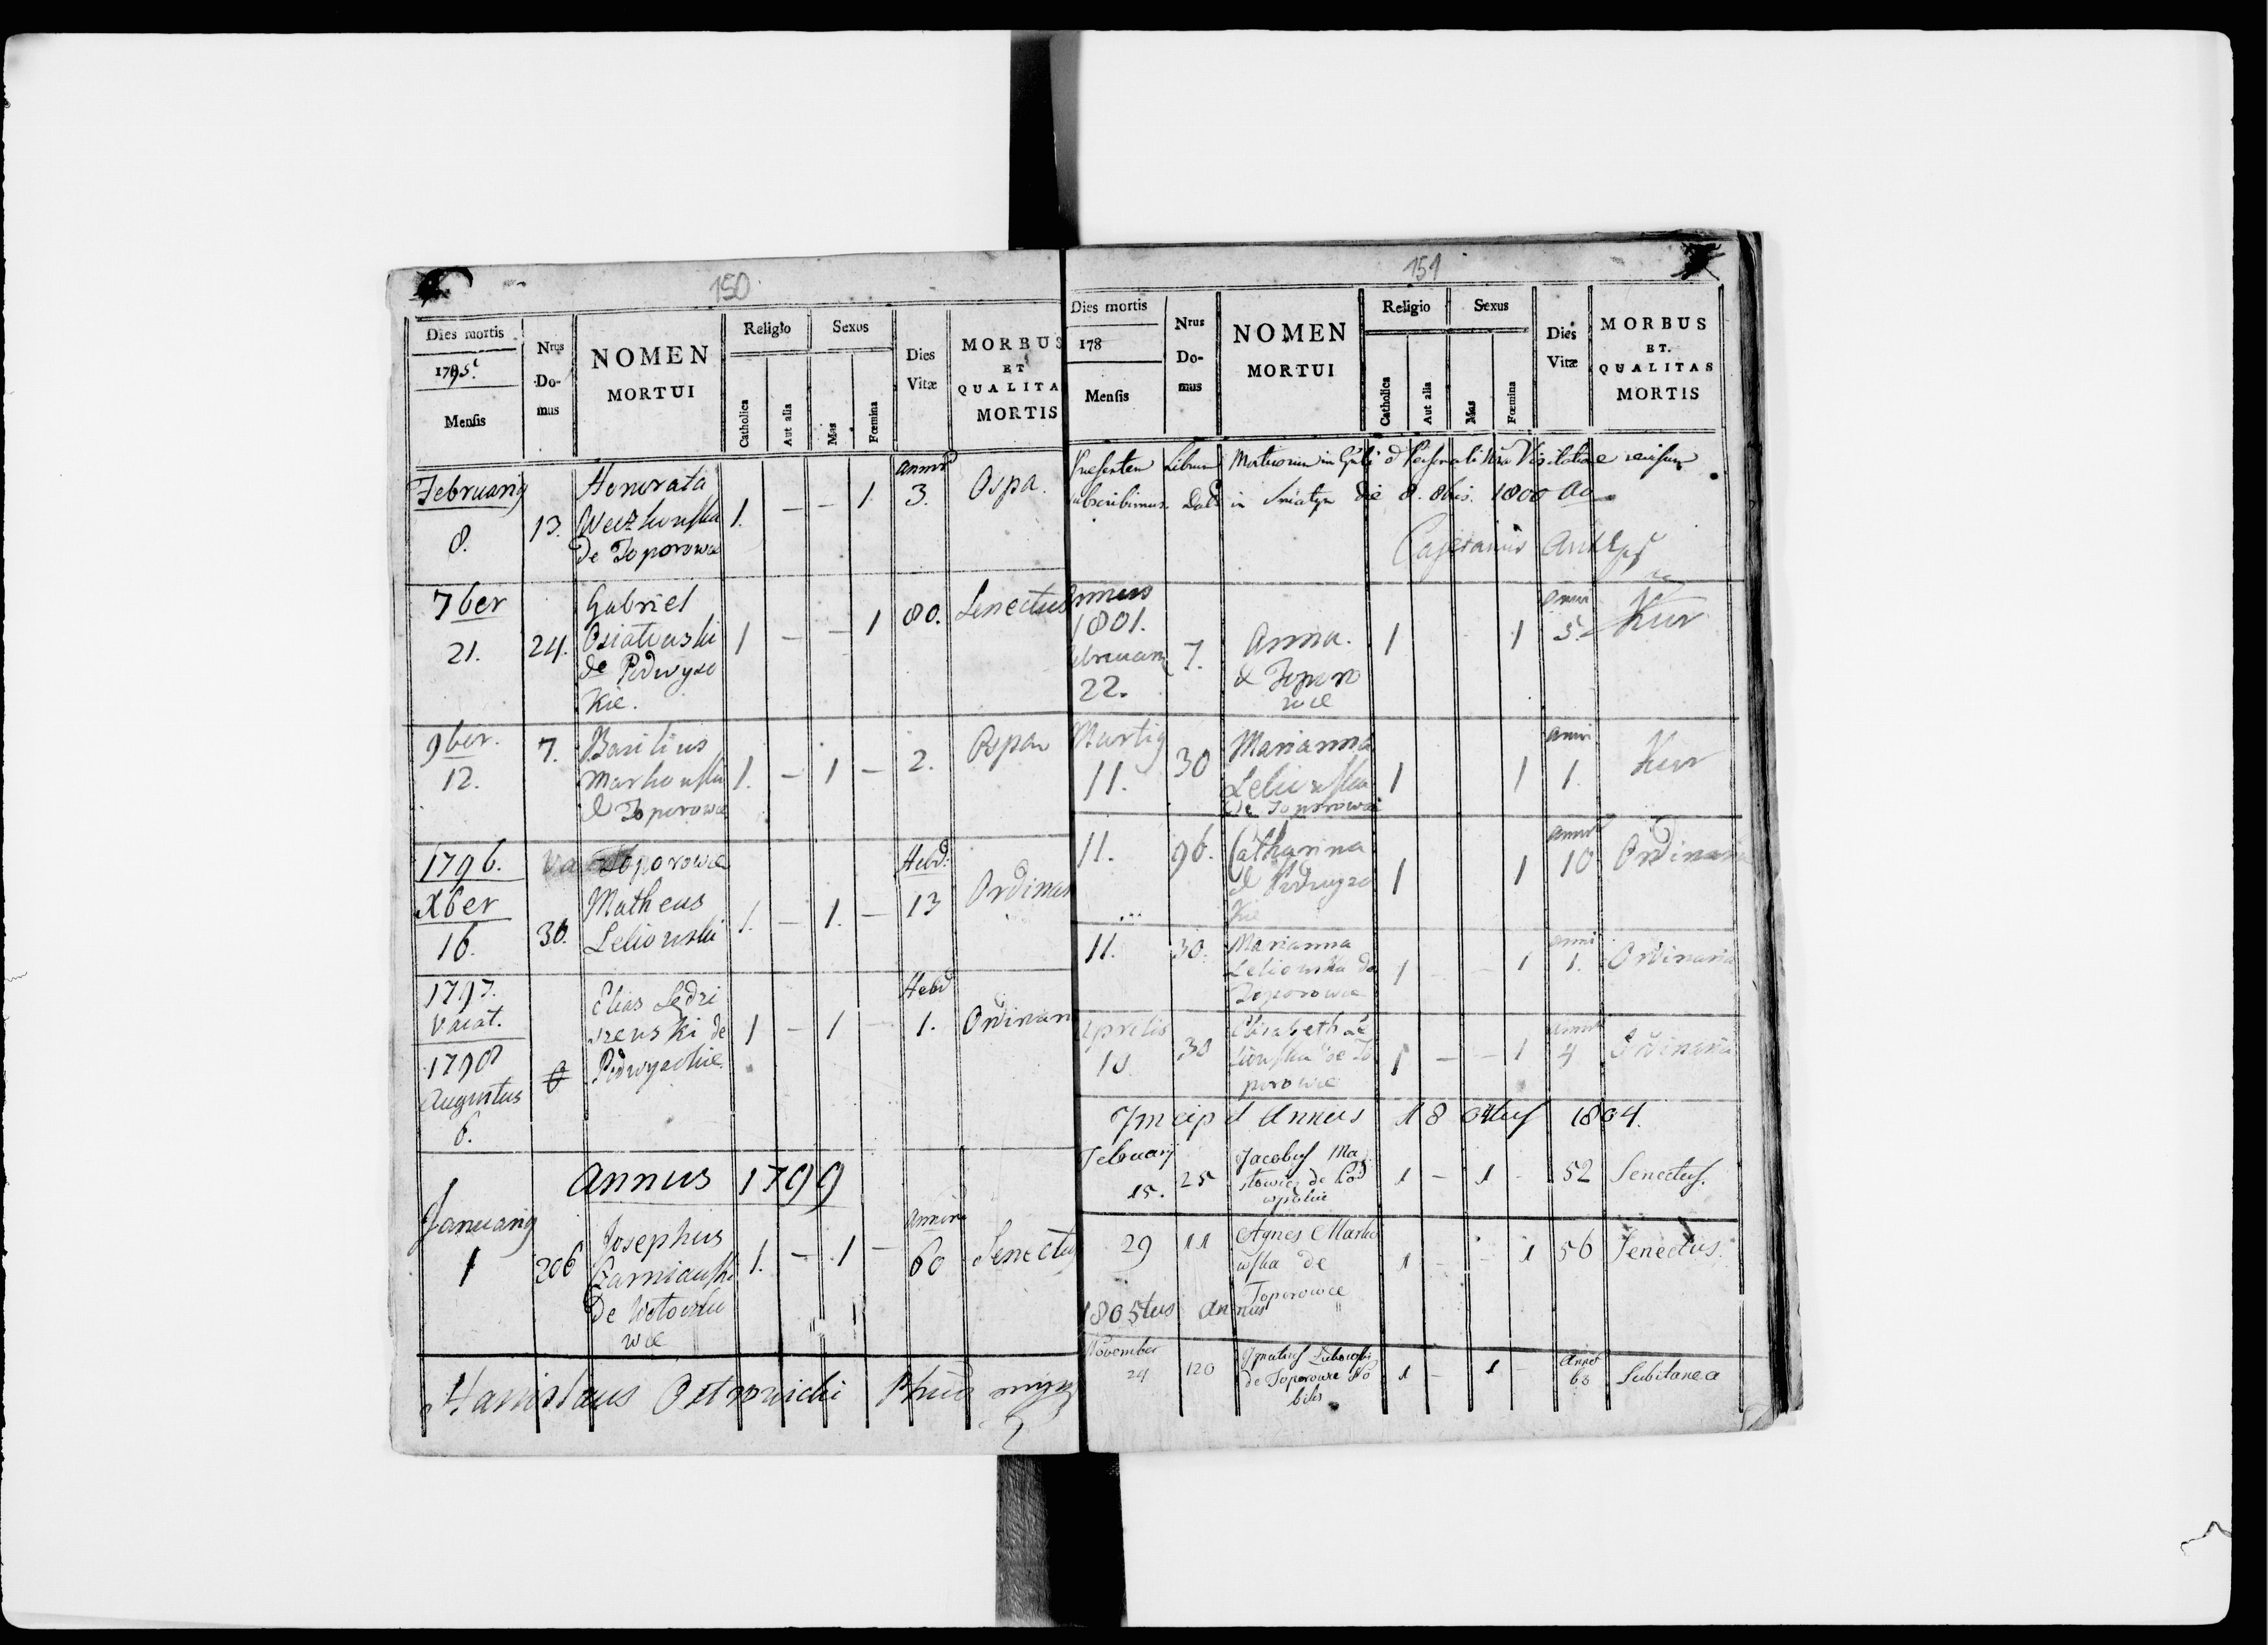 150
Dies mortis
1795.
Mensis
Nrus
Do-
mus
NOMEN
MORTUI
Religio
Catholica
Aut alia
Sexus
Mas
Fœmina
Dies
Vitæ
MORBUS
ET
QUALITA
MORTIS
Februarij
8.
13.
Honorata
de Toporowce
1.
–
–
1
annor
3.
Ospa.
7ber
21.
24.
Gabriel
Osiatowski
de Podwyso
kie.
1
–
–
1
80.
Senectus
9ber.
12.
7.
Basilius
Markowski
d Toporowce
1.
–
1
–
2.
Ospa
1796.
Xber
16.
36.
Toporowce
Matheus
Leliowski
1.
–
1.
–
Hebd:
13
Ordinar
1797.
Vacat.
1798
Augustus
6.
Elias Ledzi
1
–
1
–
Hebd
1.
Ordinar
Annus 1799
Januarij
1
206
Josephus
De
wce
1.
–
1
–
Annor
60
Senectus
Stanislaus Petrowicki
151
Dies mortis
178
Mensis
Nrus
Do-
mus
NOMEN
MORTUI
Religio
Catholica
Aut alia
Sexus
Mas
Fœmina
Dies
Vitæ
MORBUS
ET.
QUALITAS
MORTIS
Presentem Librum Mortuorum in Visitatione revisum
subscribimus. Dat. in Sniatyn die 8. 8bris. 1800 Ao
Cajetanus
Annus
1801.
Februarij
22.
7.
Anna.
d Toporo
wce
1
1
Anni
5.
Kur
Martij
11.
30
Marianna
Leliowska
de Toporowce
1
1
Anni
1.
Kur
11.
96.
Catharina
d Podwyso
kie
1
1
Annor
10
Ordinaria
11.
30.
Marianna
Leliowska de
Toporowce
1
–
–
1
anni
1.
Ordinaria
Aprilis
10.
30
Elisabeth Le
liowska de To
porowce
1
–
–
1
4
Ordinaria
Incip d Annus 18 04tus 1804.
Februarij
15.
25
Jacobus Ma
1
–
1
–
52
Senectus.
29
11
Agnes Marko
wska de
Toporowce
1
–
–
1
56
Senectus.
1805tus Annus
November
24
120
Ignatius
de Toporowce No
bilis
1
–
1
–
Annor
63
Subitanea